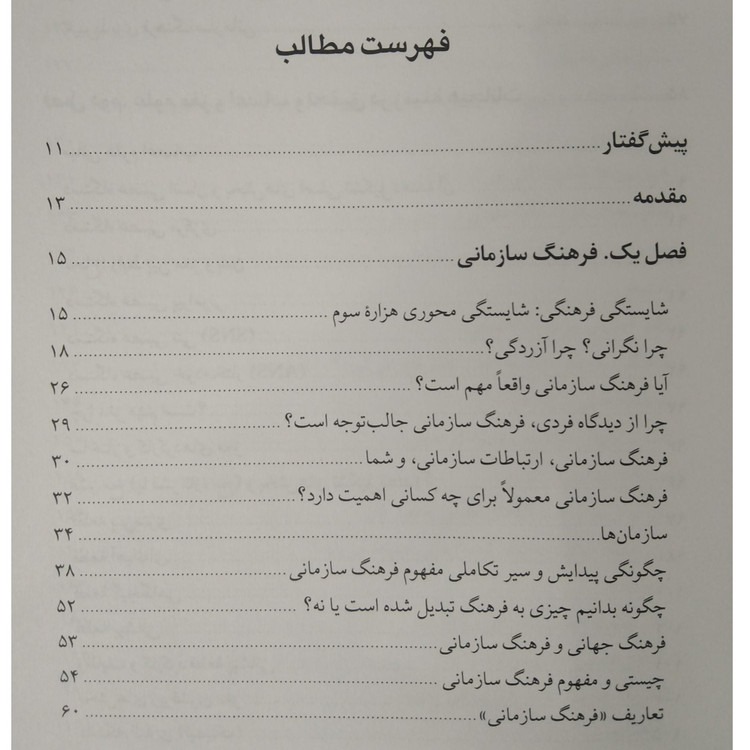 فهرست مطالب
پیش‌گفتار ........ ۱۱
مقدمه ........ ۱۳
فصل یک. فرهنگ سازمانی ........ ۱۵
شایستگی فرهنگی: شایستگی محوری هزارهٔ سوم ........ ۱۵
چرا نگرانی؟ چرا آزردگی؟ ........ ۱۸
آیا فرهنگ سازمانی واقعاً مهم است؟ ........ ۲۶
چرا از دیدگاه فردی، فرهنگ سازمانی جالب‌توجه است؟ ........ ۲۹
فرهنگ سازمانی، ارتباطات سازمانی، و شما ........ ۳۰
فرهنگ سازمانی معمولاً برای چه کسانی اهمیت دارد؟ ........ ۳۲
سازمان‌ها ........ ۳۴
چگونگی پیدایش و سیر تکاملی مفهوم فرهنگ سازمانی ........ ۳۸
چگونه بدانیم چیزی به فرهنگ تبدیل شده است یا نه؟ ........ ۵۲
فرهنگ جهانی و فرهنگ سازمانی ........ ۵۳
چیستی و مفهوم فرهنگ سازمانی ........ ۵۴
تعاریف «فرهنگ سازمانی» ........ ۶۰